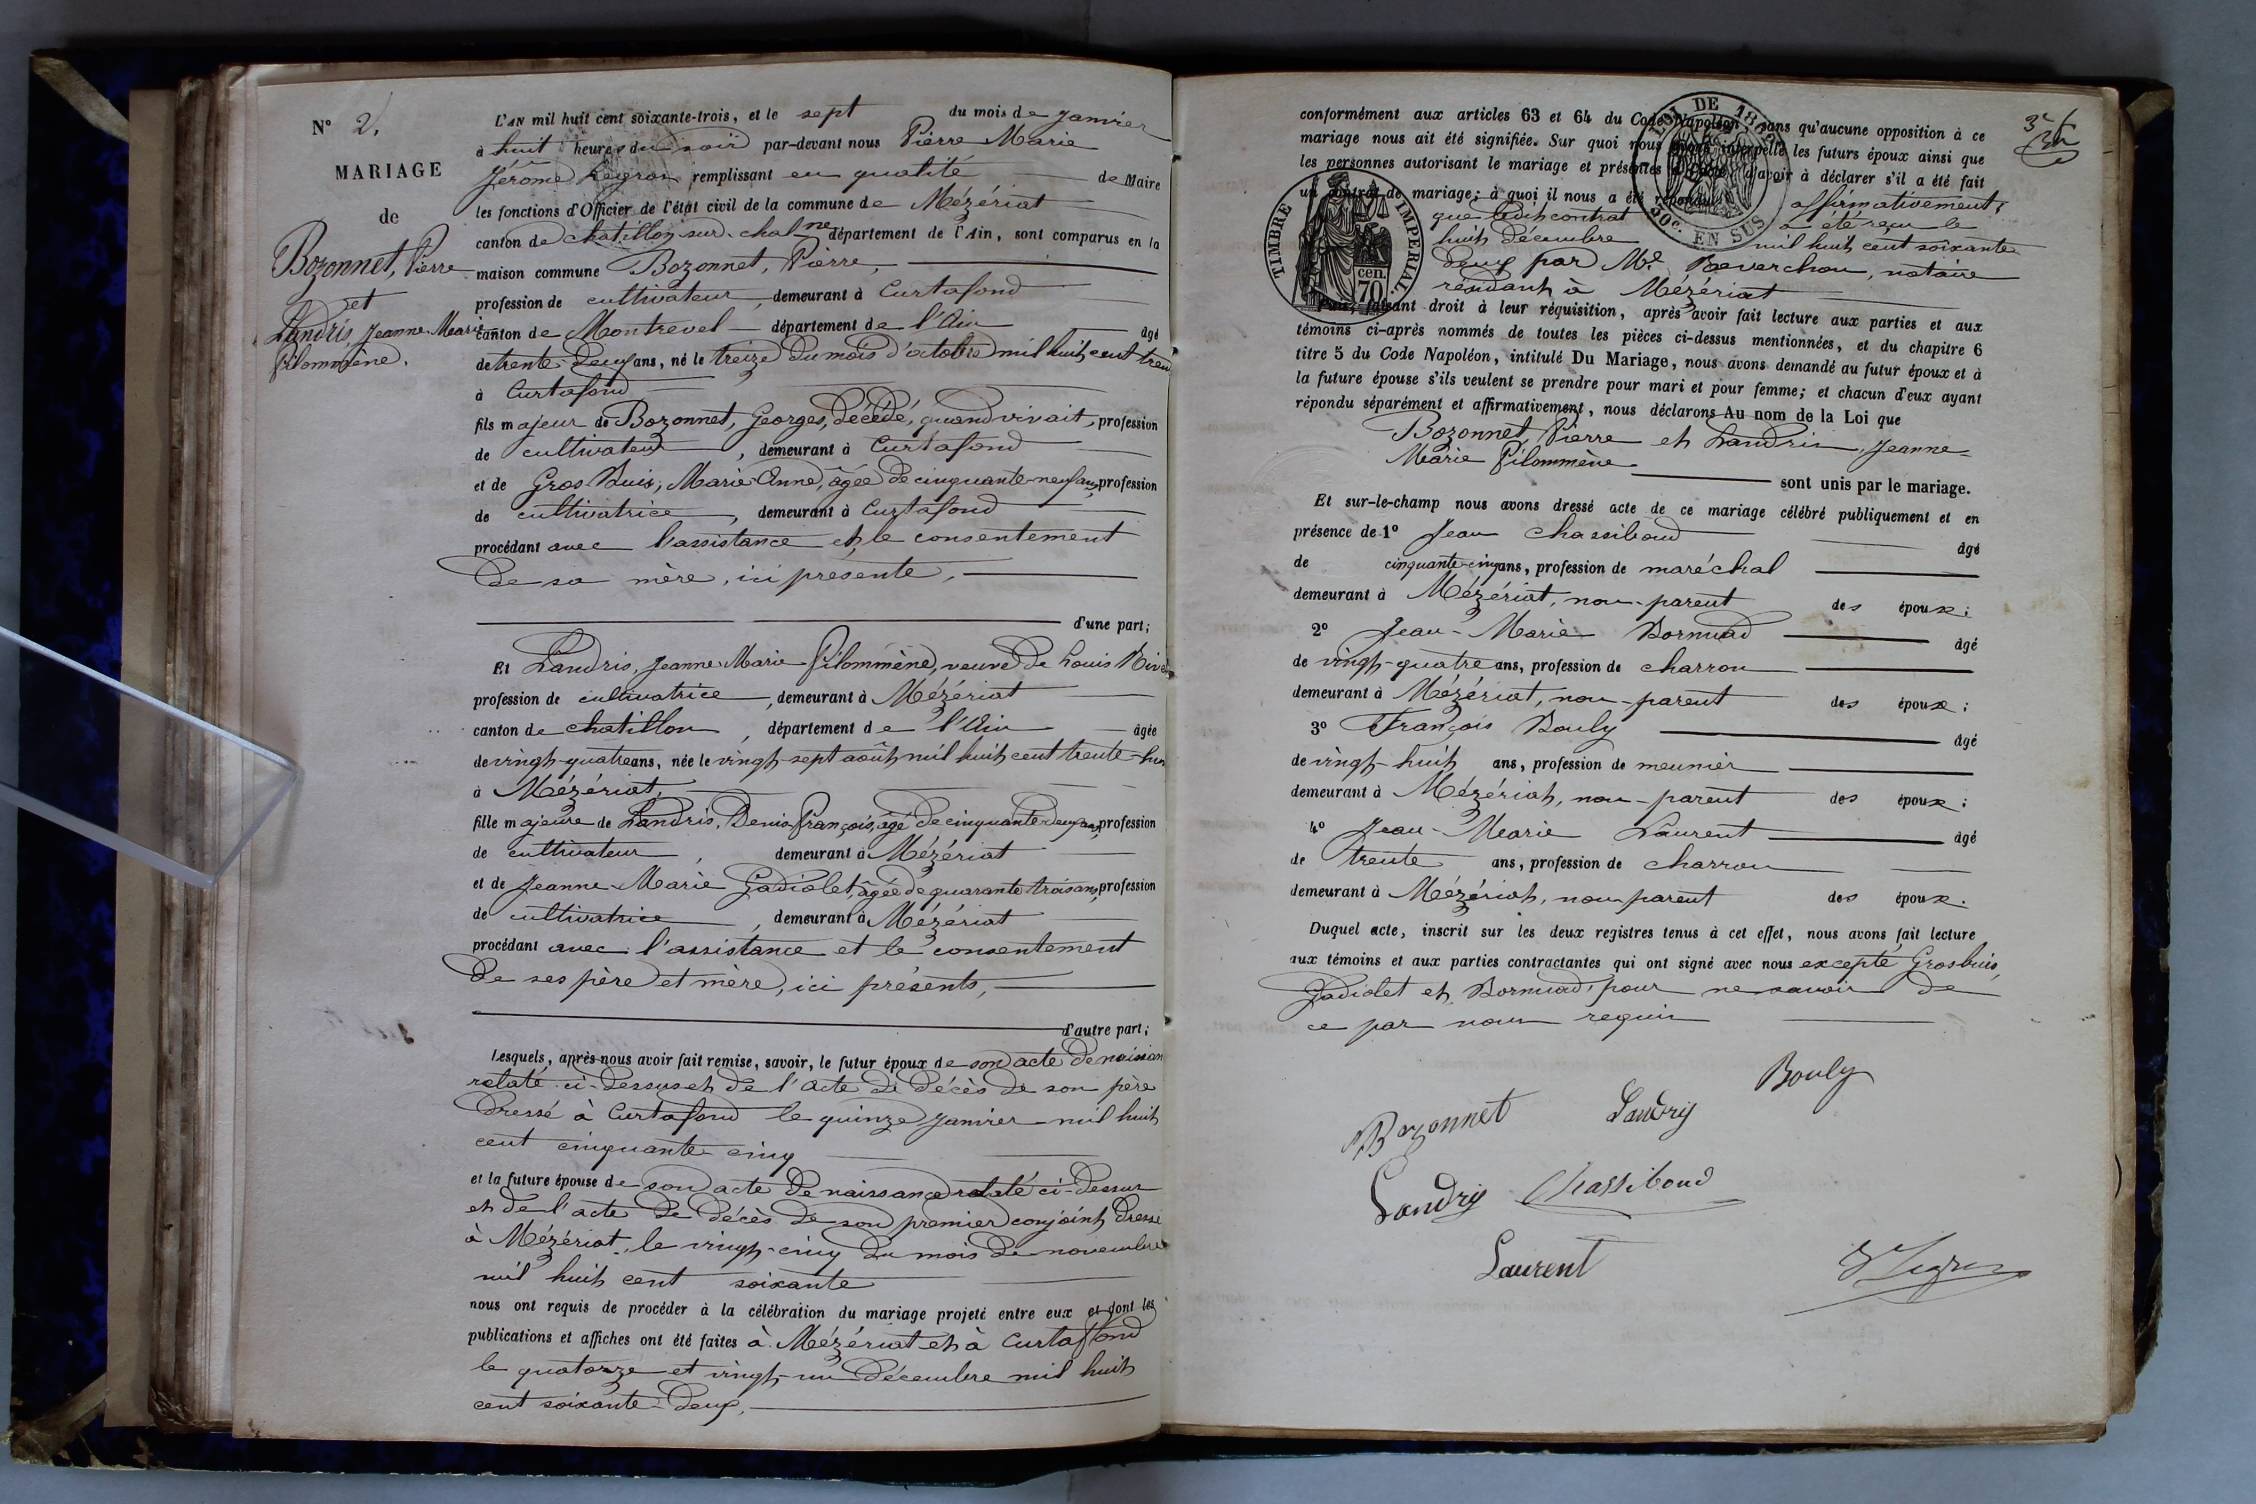 N° 2.
MARIAGE
de
Bozonnet, Pierre
et
Landris, Jeanne-Marie
filommène.
L'AN mil huit cent soixante-trois, et le sept du mois de janvier
à huit heures du soir par-devant nous Pierre Marie
Jérôme remplissant en qualité de Maire
les fonctions d'Officier de l'état civil de la commune de Mézériat
canton de chatillon-sur-chalne département de l'Ain, sont comparus en la
maison commune Bozonnet, Pierre,
profession de cultivateur, demeurant à Curtafond
canton de Montrevel département de l'Ain âgé
de trente-deux ans, né le treize du mois d'octobre mil huit cent trente
à Curtafond
fils majeur de Bozonnet, Georges, décédé, quand vivait, profession
de cultivateur, demeurant à Curtafond
et de Gros Buis, Marie-Anne, âgée de cinquante-neuf ans, profession
de cultivatrice, demeurant à Curtafond
procédant avec l'assistance et le consentement
de sa mère, ici présente,
d'une part;
Et Landris, Jeanne-Marie filommène, veuve de Louis
profession de cultivatrice, demeurant à Mézériat
canton de chatillon, département de l'Ain âgée
de vingt-quatre ans, née le vingt-sept août mil huit cent trente-huit
à Mézériat,
fille majeure de Landris, Denis-françois, âgé de cinquante-deux ans, profession
de cultivateur, demeurant à Mézériat
et de Jeanne-Marie Gadiolet, âgée de quarante-trois ans, profession
de cultivatrice, demeurant à Mézériat
procédant avec l'assistance et le consentement
de ses père et mère, ici présents,
d'autre part;
Lesquels, après nous avoir fait remise, savoir, le futur époux de son acte de naissan
relaté ci-dessus et de l'acte de décès de son père
dressé à Curtafond le quinze janvier mil huit
cent cinquante-cinq
et la future épouse de son acte de naissance relaté ci-dessus
et de l'acte de décès de son premier conjoint, dressé
à Mézériat, le vingt-cinq du mois de novembre
mil huit cent soixante
nous ont requis de procéder à la célébration du mariage projeté entre eux et dont les
publications et affiches ont été faites à Mézériat et à Curtafond
le quatorze et vingt-un décembre mil huit
cent soixante-deux,
conformément aux articles 63 et 64 du Code Napoléon, sans qu'aucune opposition à ce
mariage nous ait été signifiée. Sur quoi nous avons interpellé les futurs époux ainsi que
les personnes autorisant le mariage et présentes à d'avoir à déclarer s'il a été fait
un contrat de mariage; à quoi il nous a été répondu affirmativement,
que ledit contrat a été reçu le
huit décembre mil huit cent soixante
deux par Me notaire
résidant à Mézériat
Puis, faisant droit à leur réquisition, après avoir fait lecture aux parties et aux
témoins ci-après nommés de toutes les pièces ci-dessus mentionnées, et du chapitre 6
titre 5 du Code Napoléon, intitulé Du Mariage, nous avons demandé au futur époux et à
la future épouse s'ils veulent se prendre pour mari et pour femme; et chacun d'eux ayant
répondu séparément et affirmativement, nous déclarons Au nom de la Loi que
Bozonnet, Pierre et Landris, Jeanne-
Marie filommène
sont unis par le mariage.
Et sur-le-champ nous avons dressé acte de ce mariage célébré publiquement et en
présence de 1° Jean Chassiboud âgé
de cinquante-cinq ans, profession de maréchal
demeurant à Mézériat, non-parent des époux;
2° Jean-Marie Bornuad âgé
de vingt-quatre ans, profession de charron
demeurant à Mézériat, non-parent des époux;
3° François Bouly âgé
de vingt-huit ans, profession de meunier
demeurant à Mézériat, non-parent des époux;
4° Jean-Marie Laurent âgé
de trente ans, profession de charron
demeurant à Mézériat, non-parent des époux.
Duquel acte, inscrit sur les deux registres tenus à cet effet, nous avons fait lecture
aux témoins et aux parties contractantes qui ont signé avec nous excepté Grosbuis,
Gadiolet et Bornuad, pour ne savoir de
ce par nous requis
Bozonnet Landry Bouly
Landry Chassiboud
Laurent
TIMBRE IMPERIAL
70 cen.
LOI DE
50c. EN SUS